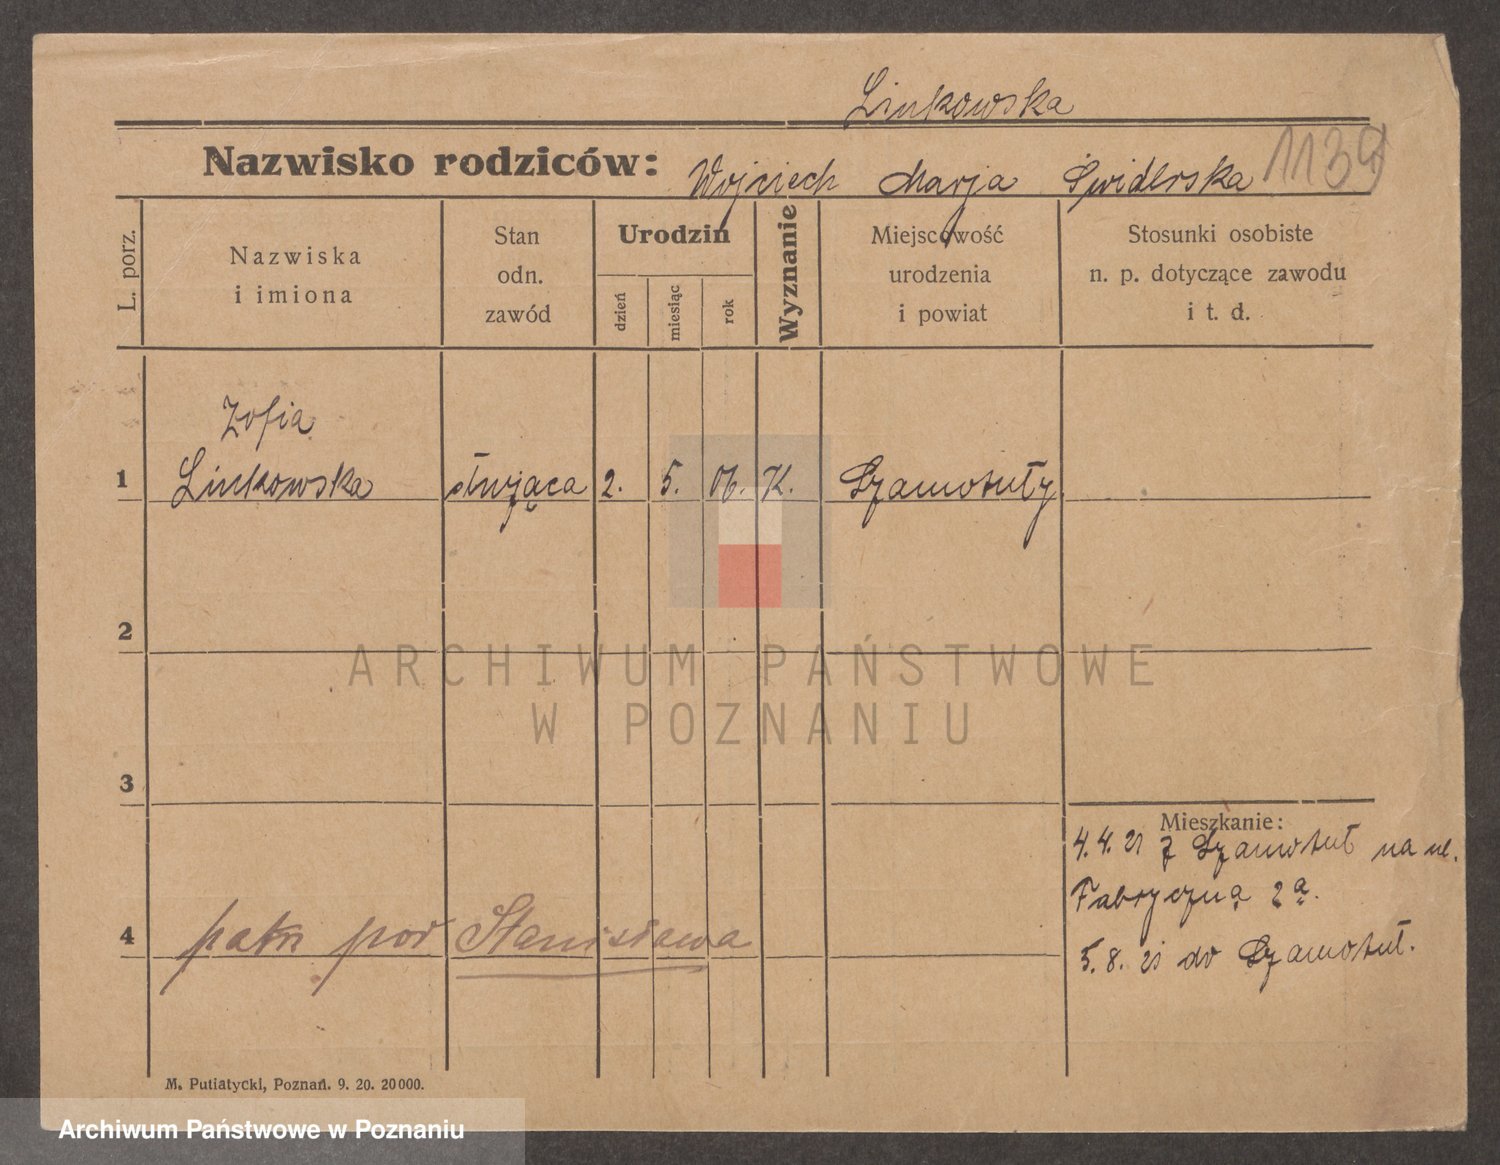 Linkowska
1139
Nazwisko rodziców: Wojciech Marja Świderska
L. porz.
Nazwiska
i imiona
Stan
odn.
zawód
Urodzin
dzień
miesiąc
rok
Wyznanie
Miejscowość
urodzenia
i powiat
Stosunki osobiste
n. p. dotyczące zawodu
i t. d.
Zofia
1 Linkowska służąca 2. 5. 06. K. Szamotuły
2
ARCHIWUM PAŃSTWOWE
W POZNANIU
3
Mieszkanie:
4.4.21 z Szamotuł na ul.
Fabryczną 2a.
4 patrz pod Stanisława
5.8.21 do Szamotuł.
M. Putiatycki, Poznań. 9. 20. 20000.
Archiwum Państwowe w Poznaniu